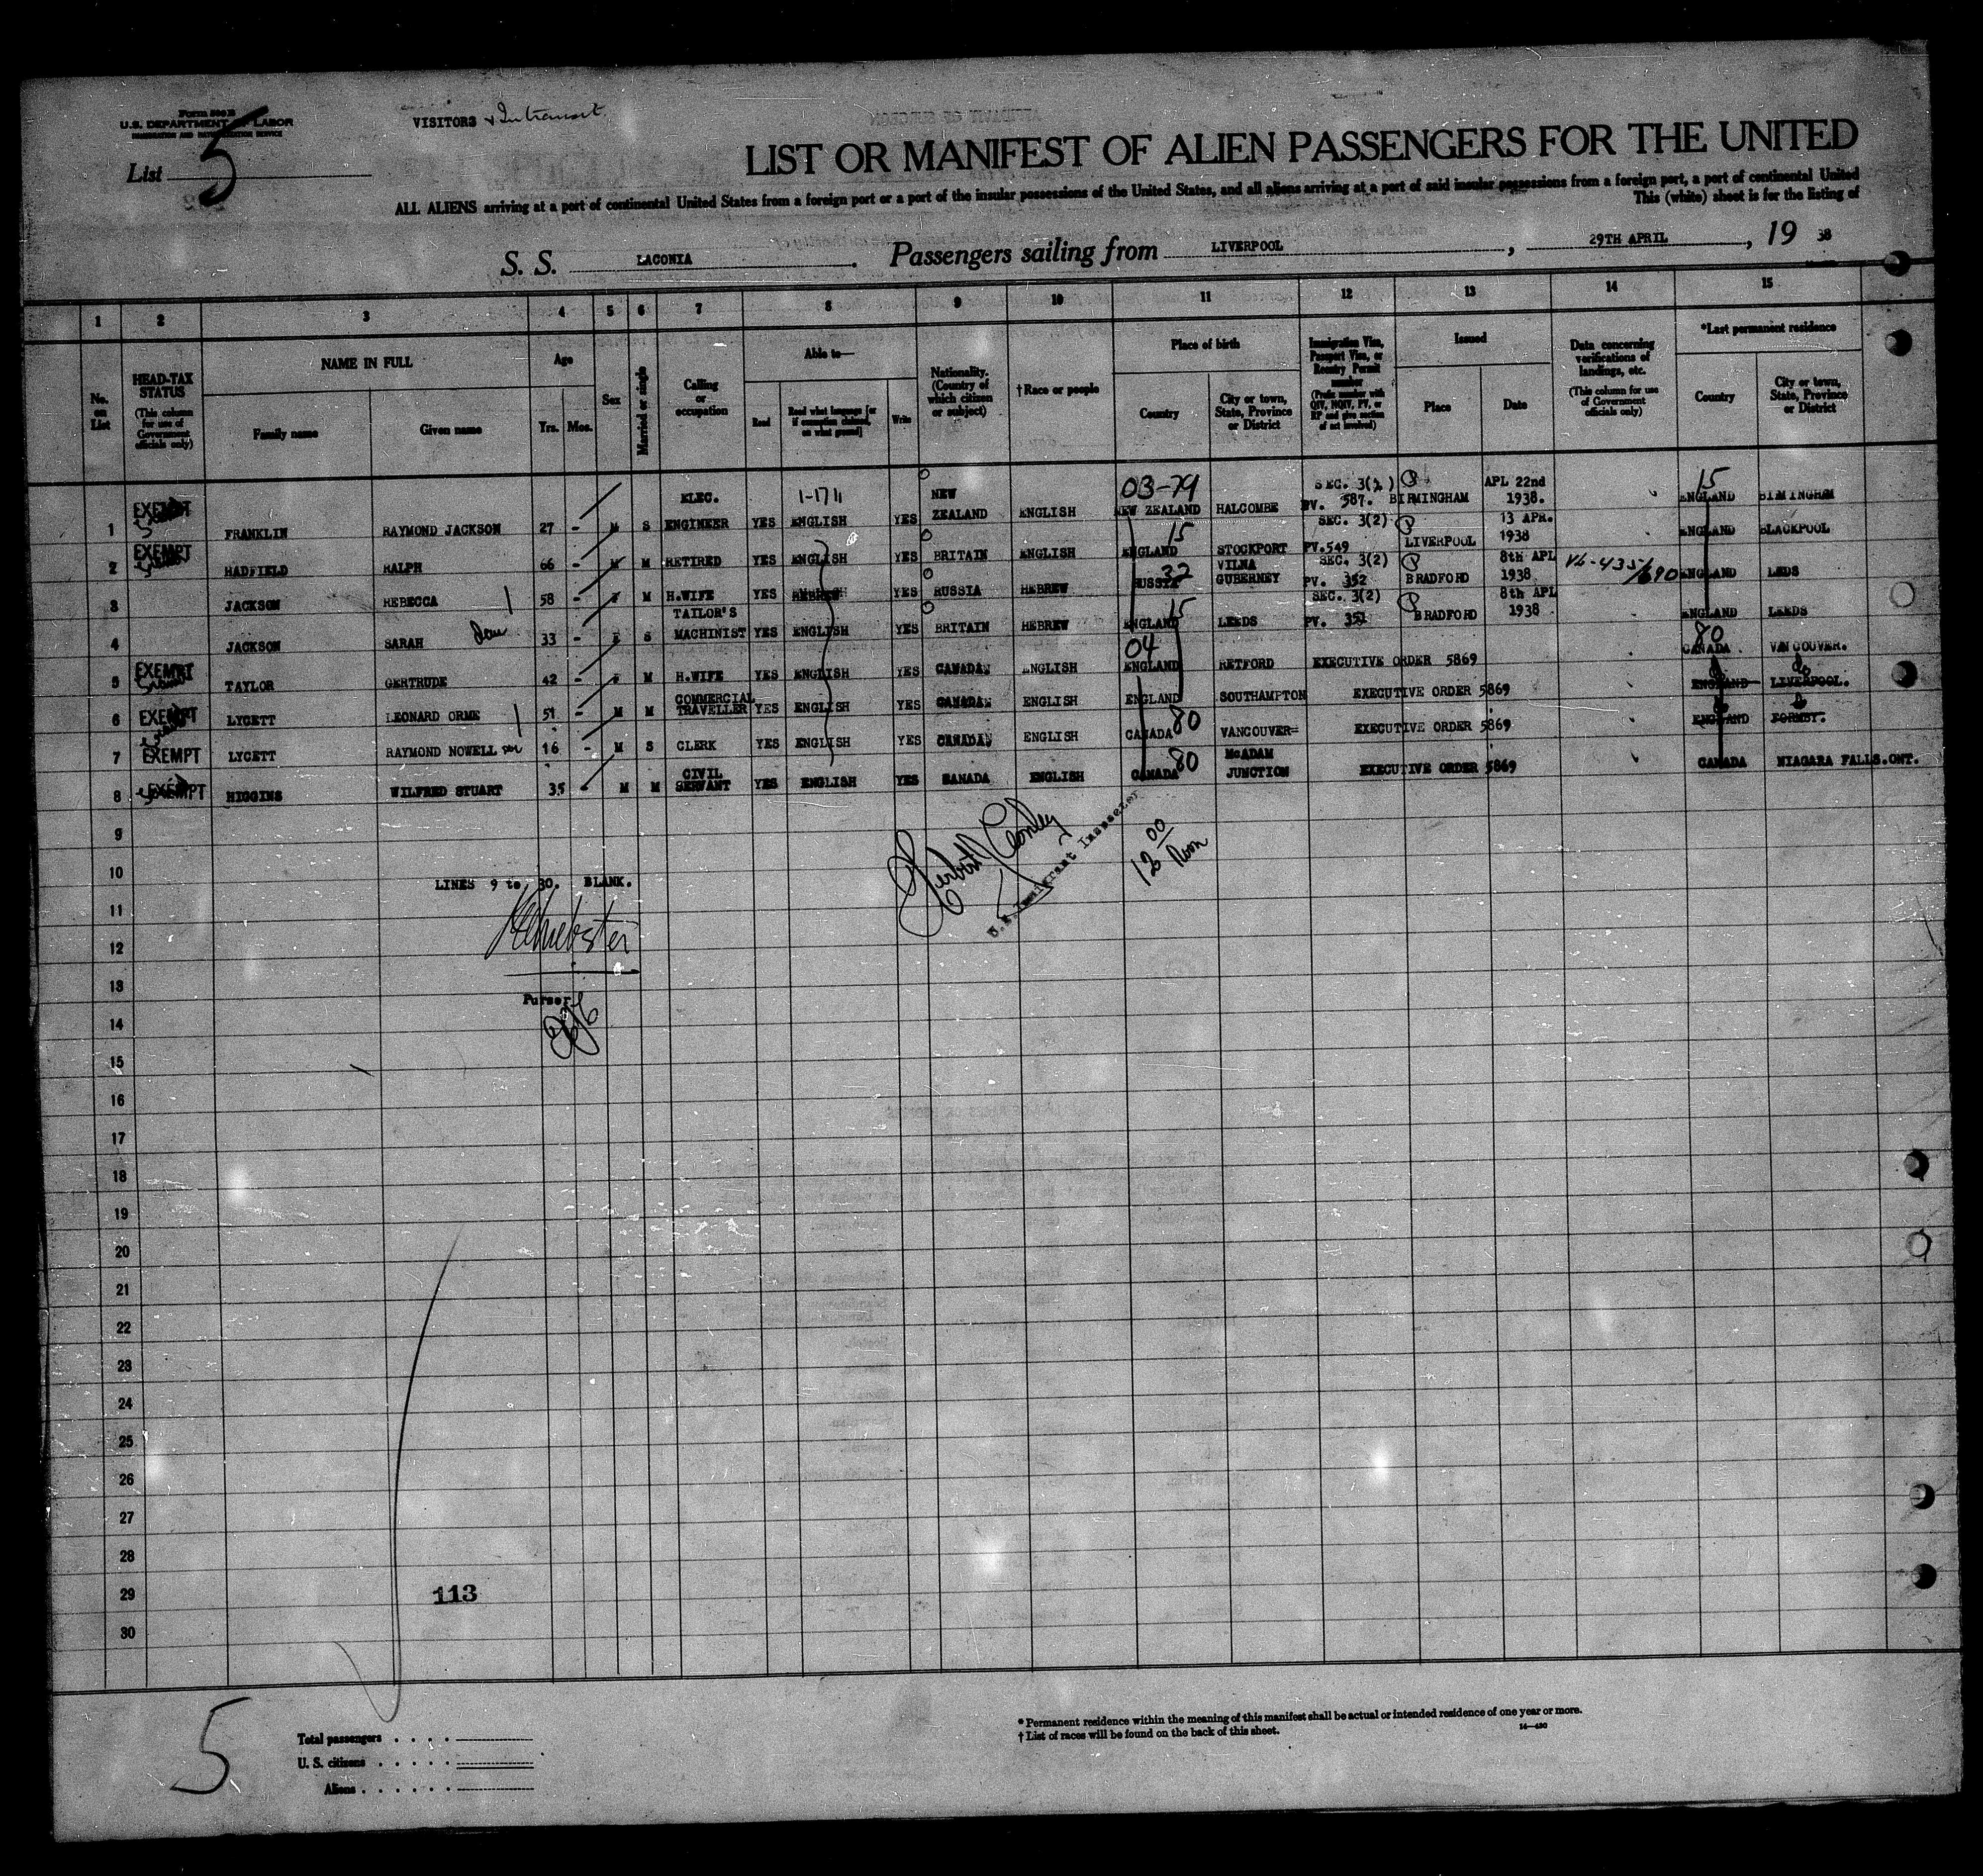 Form 500 B
U.S. DEPARTMENT OF LABOR
IMMIGRATION AND NATURALIZATION SERVICE
VISITORS & Intransit
List 5
LIST OR MANIFEST OF ALIEN PASSENGERS FOR THE UNITED
ALL ALIENS arriving at a port of continental United States from a foreign port or a port of the insular possessions of the United States, and all aliens arriving at a port of said insular possessions from a foreign port, a port of continental United
This (white) sheet is for the listing of
S. S. LACONIA. Passengers sailing from LIVERPOOL, 29TH APRIL, 19 38
1 2 3 4 5 6 7 8 9 10 11 12 13 14 15
No. on List
HEAD-TAX STATUS (This column for use of Government officials only)
NAME IN FULL
Family name
Given name
Age
Yrs. Mos.
Sex
Married or single
Calling or occupation
Able to—
Read
Read what language [or if exemption claimed, on what ground]
Write
Nationality. (Country of which citizen or subject)
† Race or people
Place of birth
Country
City or town, State, Province or District
Immigration Visa, Passport Visa, or Reentry Permit number (Prefix number with QIV, NQIV, PV, or RP and give section of act involved)
Issued
Place
Date
Data concerning verifications of landings, etc. (This column for use of Government officials only)
*Last permanent residence
Country
City or town, State, Province or District
1 EXEMPT FRANKLIN RAYMOND JACKSON 27 - M S ELEC. ENGINEER YES 1-1711 ENGLISH YES NEW ZEALAND ENGLISH 03-79 NEW ZEALAND HALCOMBE SEC. 3(2) PV. 587. BIRMINGHAM APL 22nd 1938. 15 ENGLAND BIMINGHM
2 EXEMPT HADFIELD RALPH 66 - M M RETIRED YES ENGLISH YES BRITAIN ENGLISH 15 ENGLAND STOCKPORT SEC. 3(2) PV.549 LIVERPOOL 13 APR. 1938 ENGLAND BLACKPOOL
3 JACKSON REBECCA 58 - F M H.WIFE YES HEBREW YES RUSSIA HEBREW 32 RUSSIA VILNA GUBERNEY SEC. 3(2) PV. 352 BRADFORD 8th APL 1938 V6-435/690 ENGLAND LEDS
4 JACKSON SARAH dau 33 - F S TAILOR'S MACHINIST YES ENGLISH YES BRITAIN HEBREW 15 ENGLAND LEEDS SEC. 3(2) PV. 351 BRADFORD 8th APL 1938 ENGLAND LEEDS
5 EXEMPT TAYLOR GERTRUDE 42 - F M H.WIFE YES ENGLISH YES CANADA ENGLISH 04 ENGLAND RETFORD EXECUTIVE ORDER 5869 80 CANADA VANCOUVER.
6 EXEMPT LYCETT LEONARD ORME 51 - M M COMMERCIAL TRAVELLER YES ENGLISH YES CANADA ENGLISH ENGLAND SOUTHAMPTON EXECUTIVE ORDER 5869 ENGLAND LIVERPOOL.
7 EXEMPT LYCETT RAYMOND NOWELL son 16 - M S CLERK YES ENGLISH YES CANADA ENGLISH CANADA 80 VANCOUVER= EXECUTIVE ORDER 5869 ENGLAND FORMBY.
8 EXEMPT HIGGINS WILFRED STUART 35 - M M CIVIL SERVANT YES ENGLISH YES CANADA ENGLISH CANADA 80 McADAM JUNCTION EXECUTIVE ORDER 5869 CANADA NIAGARA FALLS.ONT.
9
10
LINES 9 to 30. BLANK.
U.S. Immigrant Inspector
12 00 Noon
11
12
13
Purser
14
15
16
17
18
19
20
21
22
23
24
25
26
27
28
29 113
30
5
Total passengers
U. S. citizens
Aliens
* Permanent residence within the meaning of this manifest shall be actual or intended residence of one year or more.
† List of races will be found on the back of this sheet.
14—430